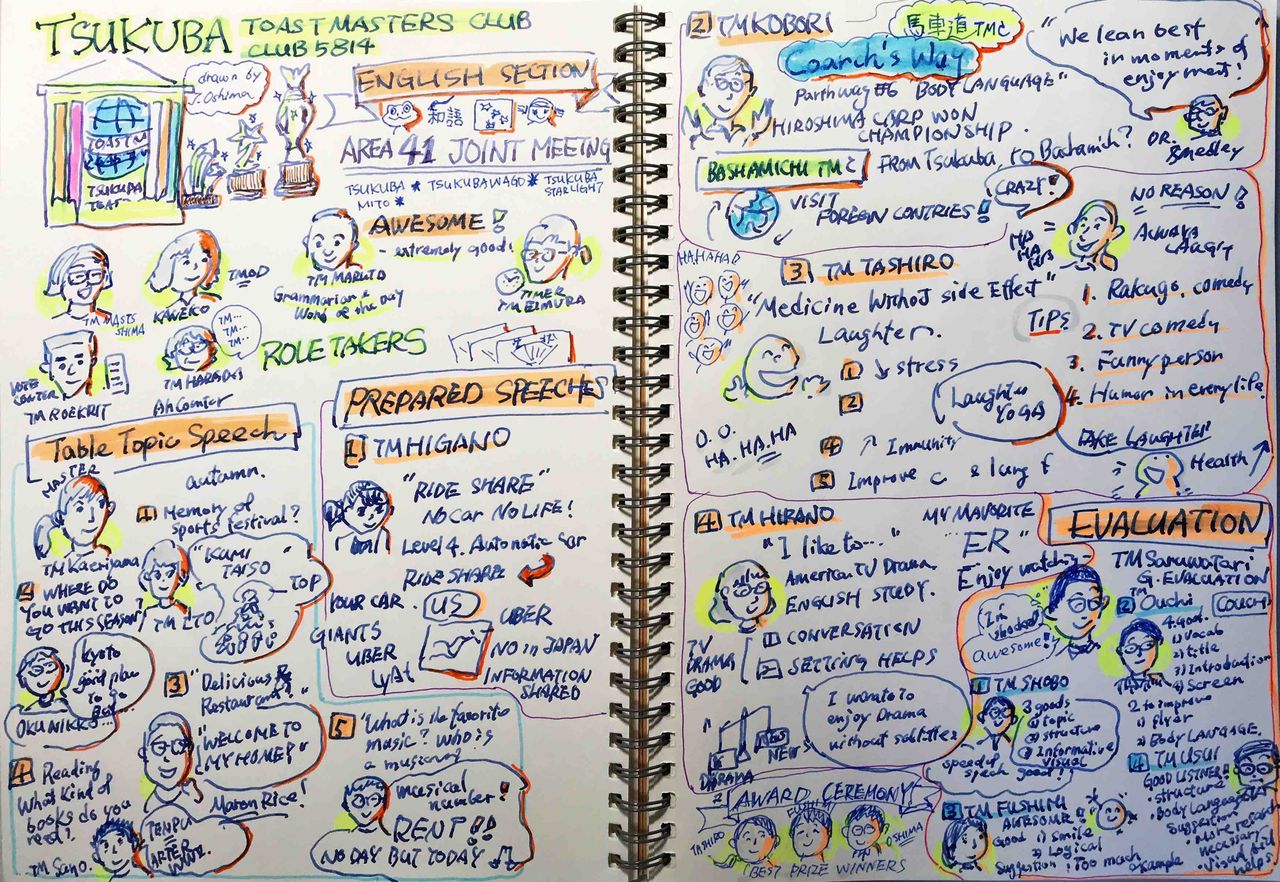 TSUKUBA TOASTMASTERS CLUB
CLUB 5814
drawn by
J. Oshima
TOASTM
TSUKUBA
ENGLISH SECTION
和語
AREA 41 JOINT MEETING
TSUKUBA * TSUKUBAWAGO * TSUKUBA
STARLIGHT
MITO *
AWESOME!
- extremely good!
TMOD
KANEKO
TM MARUTO
Grammarian &
Word of the Day
TIMER
TM EIMURA
TM...
TM...
TM HARADA
Ah Counter
VOTE
COUNTER
ROLE TAKERS
Table Topic Speech
MASTER
TM Kaeriyama
autumn.
1 Memory of
sports festival?
"KUMI
TAISO"
TOP
TM ITO
2 WHERE DO
YOU WANT TO
GO THIS SEASON?
Kyoto
good place
to go
but...
OKUNIKKO...
3 "Delicious
Restaurant?"
"WELCOME TO
MY HOME!"
Maron Rice!
4 Reading
What kind of
books do you
read?
TM Sano.
TENPU
5 "What is the favorite
music? Who is
a musician?
musical
number!
RENT!!
NO DAY BUT TODAY
PREPARED SPEECHES
1 TM HIGANO
"RIDE SHARE"
No Car No LIFE!
Level 4. Automatic car
RIDE SHARE
YOUR CAR.
US
GIANTS
UBER
LyAt
UBER
NO in JAPAN
INFORMATION
SHARED
2 TM KOBORI
馬車道 TMC
Coarch's Way
Parthway #6 BODY LANGUAGE"
HIROSHIMA CARP WON
CHAMPIONSHIP.
"We lean best
in moments of
enjoyment!
DR.
Smedley
BASHAMICHI TMC
FROM Tsukuba, to Bashamich?
CRAZY!
VISIT
FOREGIN CONTRIES!
3 TM TASHIRO
HA.HAHAD
"Medicine Without side Effect"
Laughter.
HA
HA
HA
NO REASON!
ALWAYS
LAUGH
TIPS
1. Rakugo, comedy
2. TV comedy
3. Funny person
4. Humor in every life.
1 ↘ stress
2
4 ↗ Immunity
5 Improve c & lung f
O.O.
HA.HA.HA
Laughter
YOGA
FAKE LAUGHTER
Health
4 TM HIRANO
"I like to..."
MY MAVORITE
"ER"
American TV Drama.
Enjoy watching
ENGLISH STUDY.
TV
DRAMA
GOOD
1 CONVERSATION
2 SETTING HELPS
I want to
enjoy Drama
without subtitles
NEWS
DRAMA
AWARD CEREMONY
TASHIRO
OSHIMA
BEST PRIZE WINNERS
EVALUATION
TM Saruwatari
G. EVALUATION
I'm
shocked
awesome!
1 TM SHOBO
3 goods
① topic
② structure
③ Informative
visual
speed of
speech good!!
2 TM Ouchi
COUCH
4 Good.
1) Vocab
2) title
3) Introduction
4) Screen
2 to improve
1) flyer
2) Body LANGAGE.
3 TM FUSHIMI
AWESOME!
Good 1) Smile
2) Logical
Suggestion: Too much
example
4 TM USUI
GOOD LISTNER!
• structure
• Body Language
Suggestion
• More research
necessary
• Visual aid
helps.